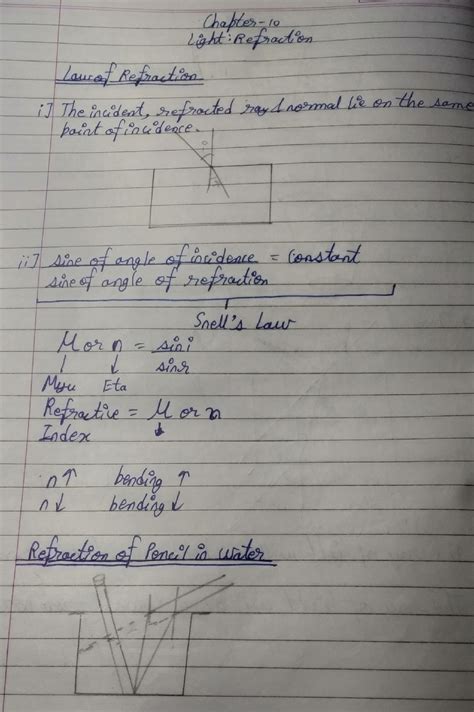 Chapter-10
Light: Refraction
Law of Refraction
i] The incident, refracted ray & normal lie on the same
point of incidence.
i
r
ii] sine of angle of incidence = constant
sine of angle of refraction
Snell's Law
μ or n = sin i
sin r
Myu Eta
Refractive = μ or n
Index
n↑ bending ↑
n↓ bending ↓
Refraction of Pencil in Water